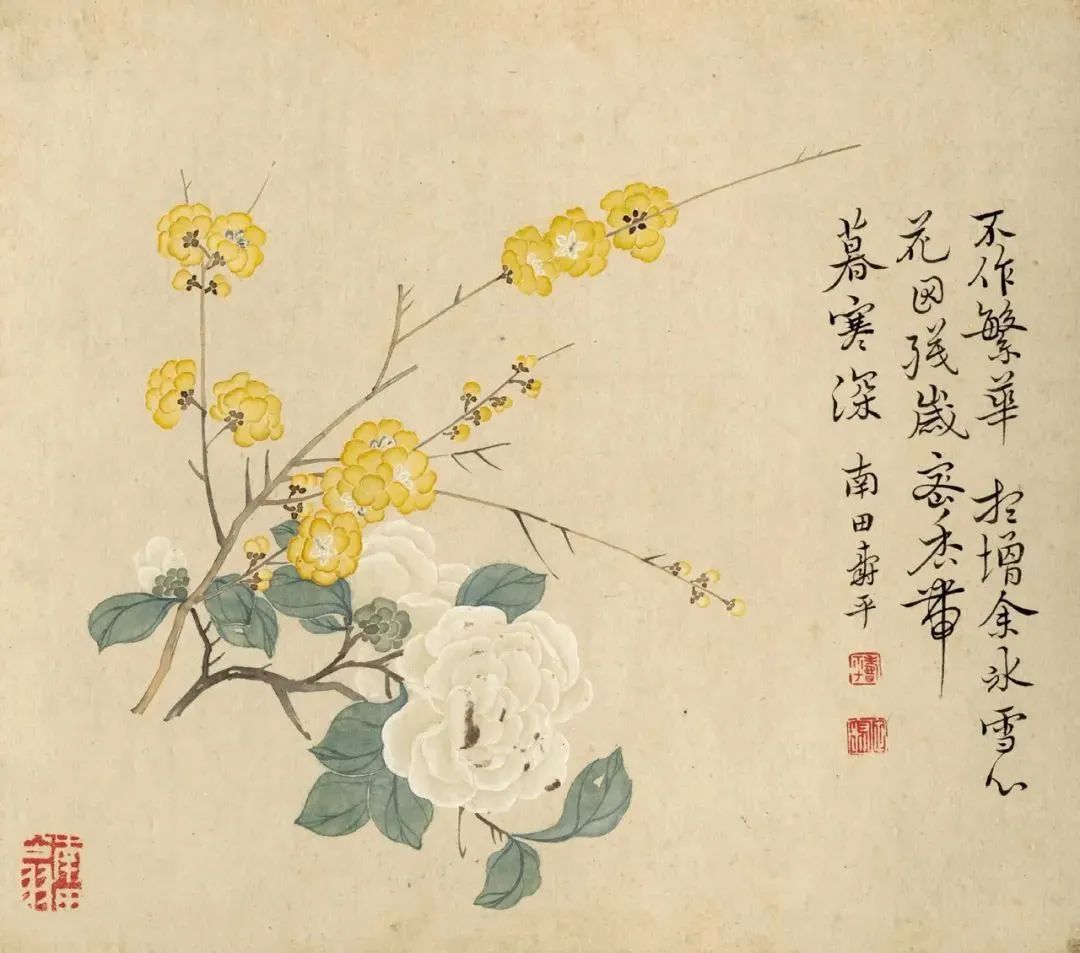 不作繁華想增余冰雪心
花因殘歲密香帶
暮寒深 南田壽平